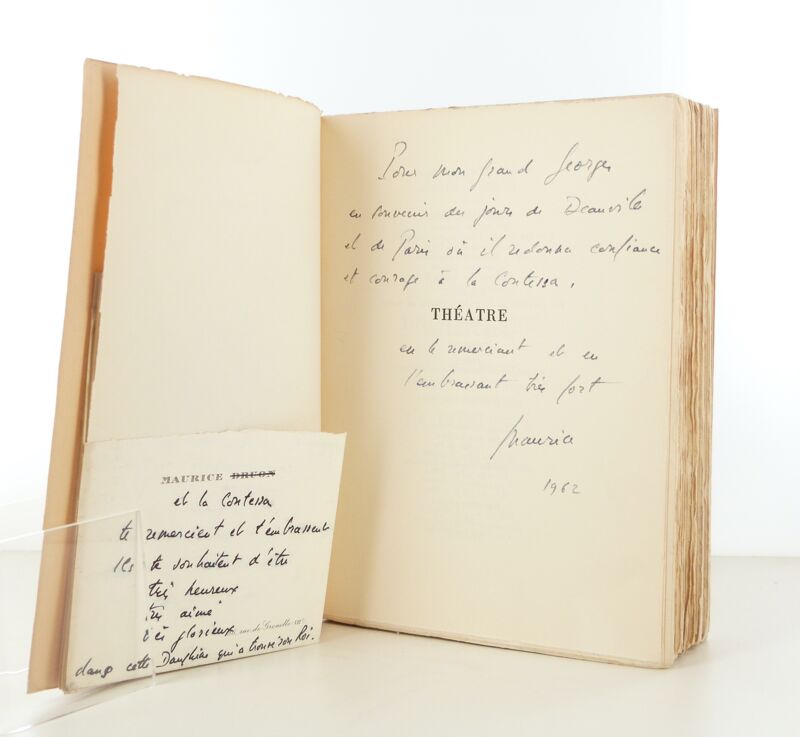 Pour mon grand Georges
en souvenir des jours de Deauville
et de Paris où il redonna confiance
et courage à la Contessa,
THÉATRE
en le remerciant et en
l'embrassant très fort
Maurice
1962
MAURICE DRUON
et la Contessa
te remercient et t'embrassent
Ils te souhaitent d'être
très heureux
très aimé
très glorieux rue de Grenelle VIIe
dans cette Dauphine qui a trouvé son Roi.